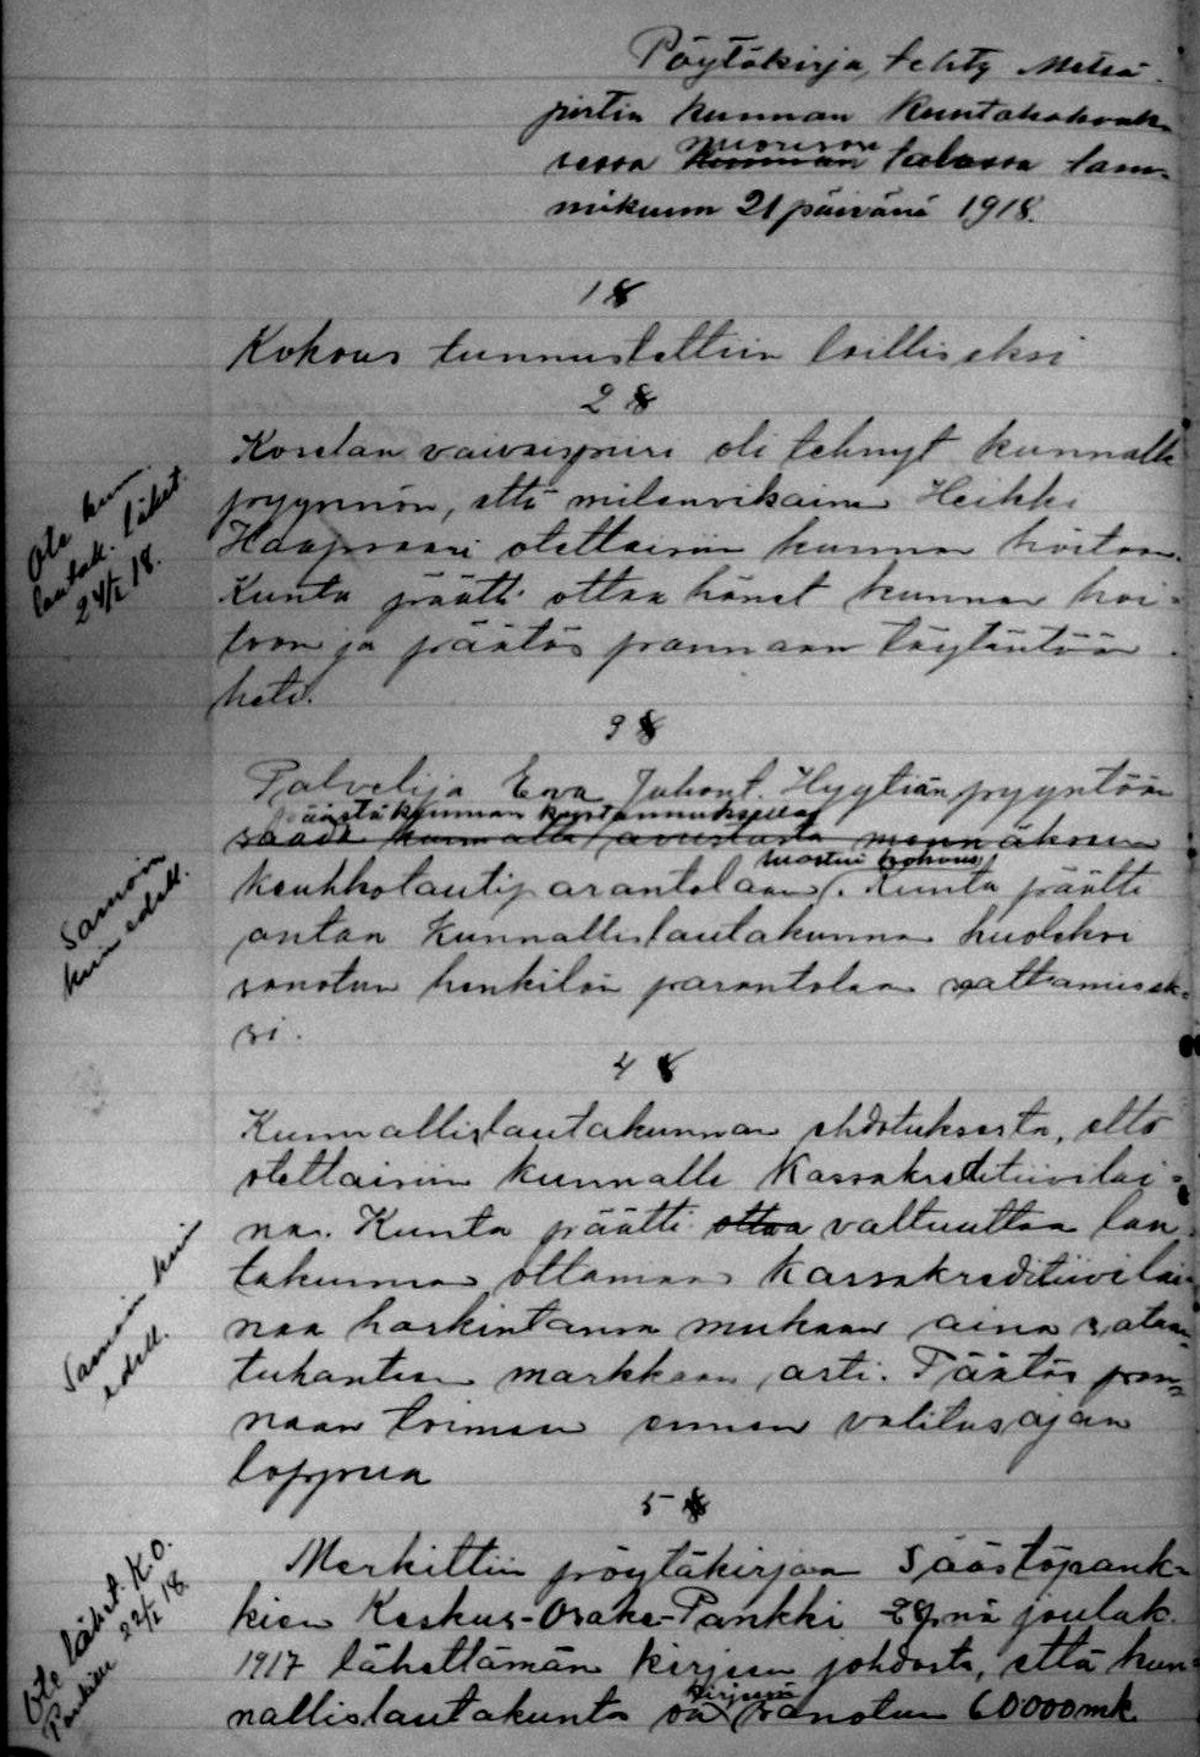 Pöytäkirja, tehty Metsä-
pirtin kunnan Kuntakokouk-
sessa kunnan nuorison talossa tam-
mikuun 21 päivänä 1918.
1 §
Kokous tunnustettiin lailliseksi
2 §
Koselan vaivaispiiri oli tehnyt kunnalle
pyynnön, että mielenvikainen Heikki
Haapsaari otettaisiin kunnan hoitoon.
Kunta päätti ottaa hänet kunnan hoi-
toon ja päätös pannaan täytäntöön
heti.
Ote kun.
lautak. lähet.
24/I 18.
3 §
Palvelija Eva Juhont. Hyytiän pyyntöön
päästä kunnan kustannuksella
saada kunnalta avustusta mennäkseen
keuhkotautiparantolaan, suostui kokous. Kunta päätti
antaa Kunnallislautakunnan huoleksi
sanotun henkilön parantolaan saattamisek-
si.
Samoin
kuin edell.
4 §
Kunnallislautakunnan ehdotuksesta, että
otettaisiin kunnalle Kassakreditiivilai-
na. Kunta päätti ottaa valtuuttaa lau-
takunnan ottamaan Kassakreditiivilai-
naa harkintansa mukaan aina sataan-
tuhanteen markkaan asti. Päätös pan-
naan toimeen ennen valitusajan
loppua
Samoin kuin
edell.
5 §
Merkittiin pöytäkirjaan Säästöpank-
kien Keskus-Osake-Pankki 28 p:nä jouluk.
1917 lähettämän kirjeen johdosta, että kun-
nallislautakunta on kirjeessä sanotun 60000 mk
Ote lähet. K.O.
Pankille 22/I 18.